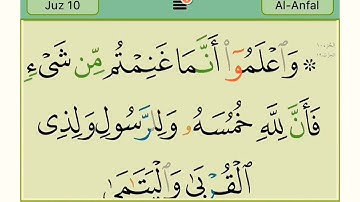 Juz 10
Al-Anfal
۞ وَٱعْلَمُوٓا۟ أَنَّمَا غَنِمْتُم مِّن شَىْءٍ
فَأَنَّ لِلَّهِ خُمُسَهُۥ وَلِلرَّسُولِ وَلِذِى
ٱلْقُرْبَىٰ وَٱلْيَتَـٰمَىٰ